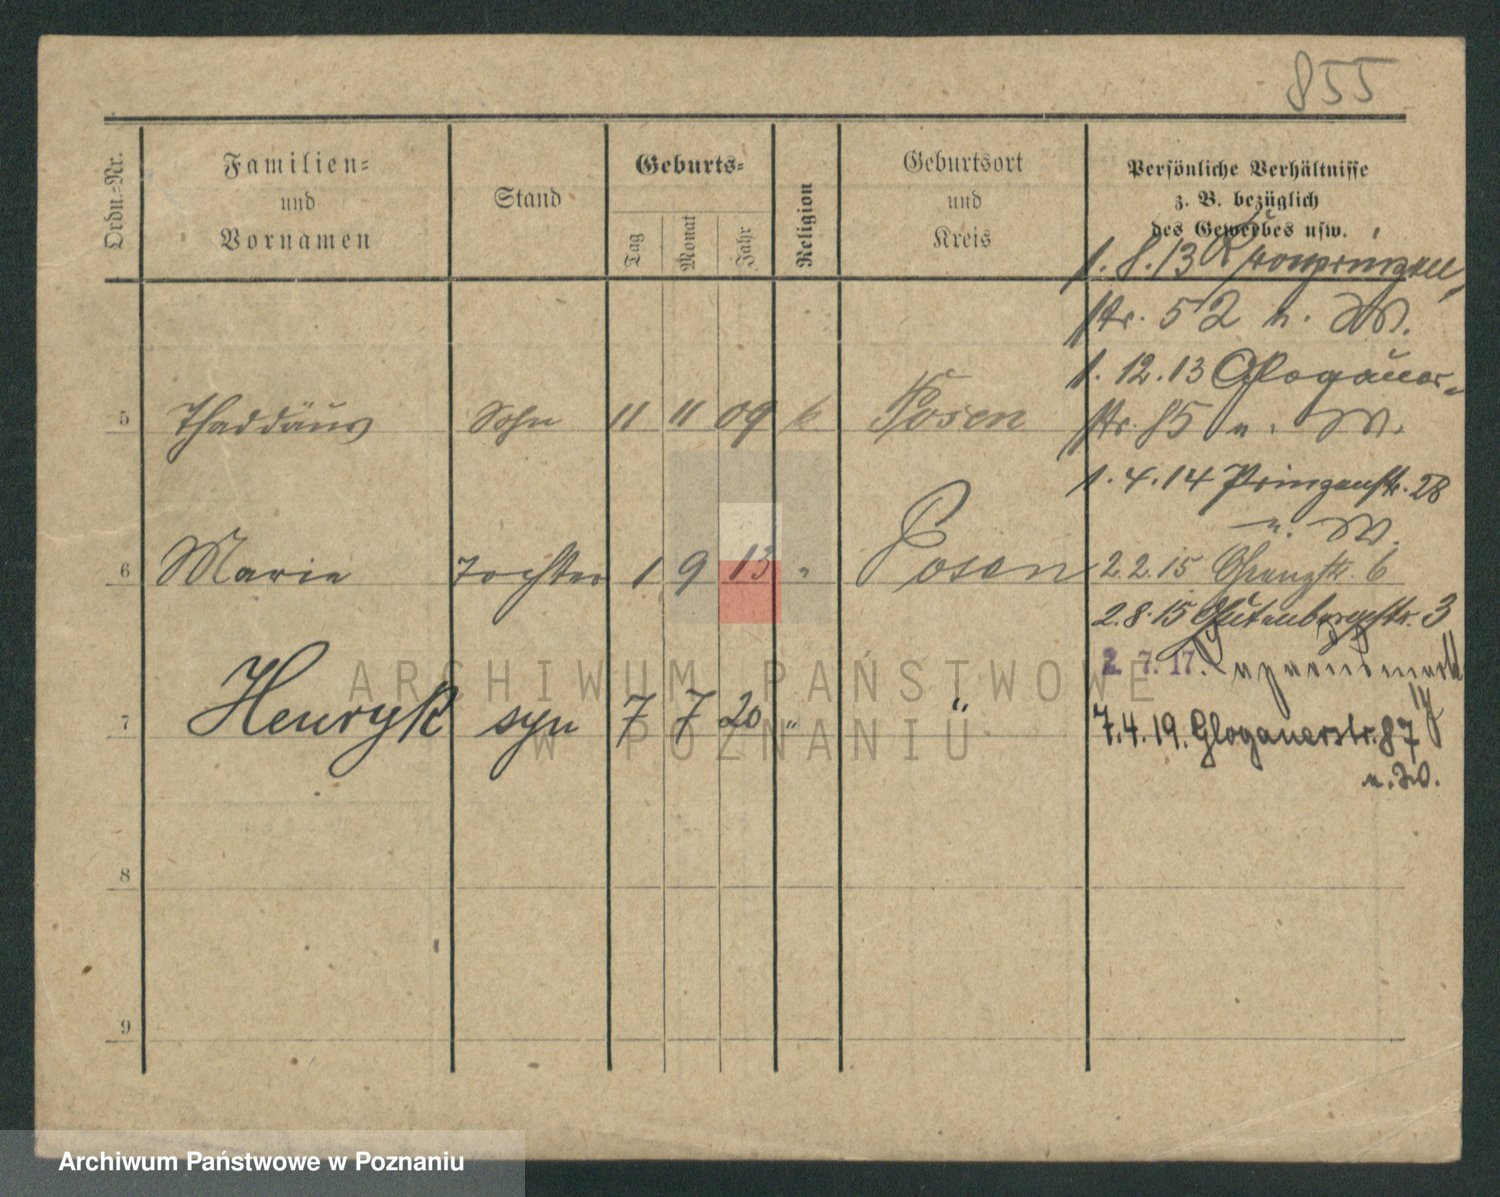 855
Ordn.-Nr.
Familien-
und
Vornamen
Stand
Geburts-
Tag
Monat
Jahr
Religion
Geburtsort
und
Kreis
Persönliche Verhältnisse
z. B. bezüglich
des Gewerbes usw.
1.8.13 Kronprinzen-
str. 52 n. W.
1.12.13 Glogauer-
5 Thaddäus Sohn 11 11 09 k. Posen
str. 85 n. W.
1.4.14 Prinzenstr. 28
n. W.
6 Marie Tochter 1 9 13 " Posen
2.2.15 6
2.8.15 Gutenbergstr. 3
2. 7. 17.
7 Henryk syn 7 7 20 " "
7.4.19. Glogauerstr. 87
n. W.
8
9
ARCHIWUM PAŃSTWOWE
W POZNANIU
Archiwum Państwowe w Poznaniu